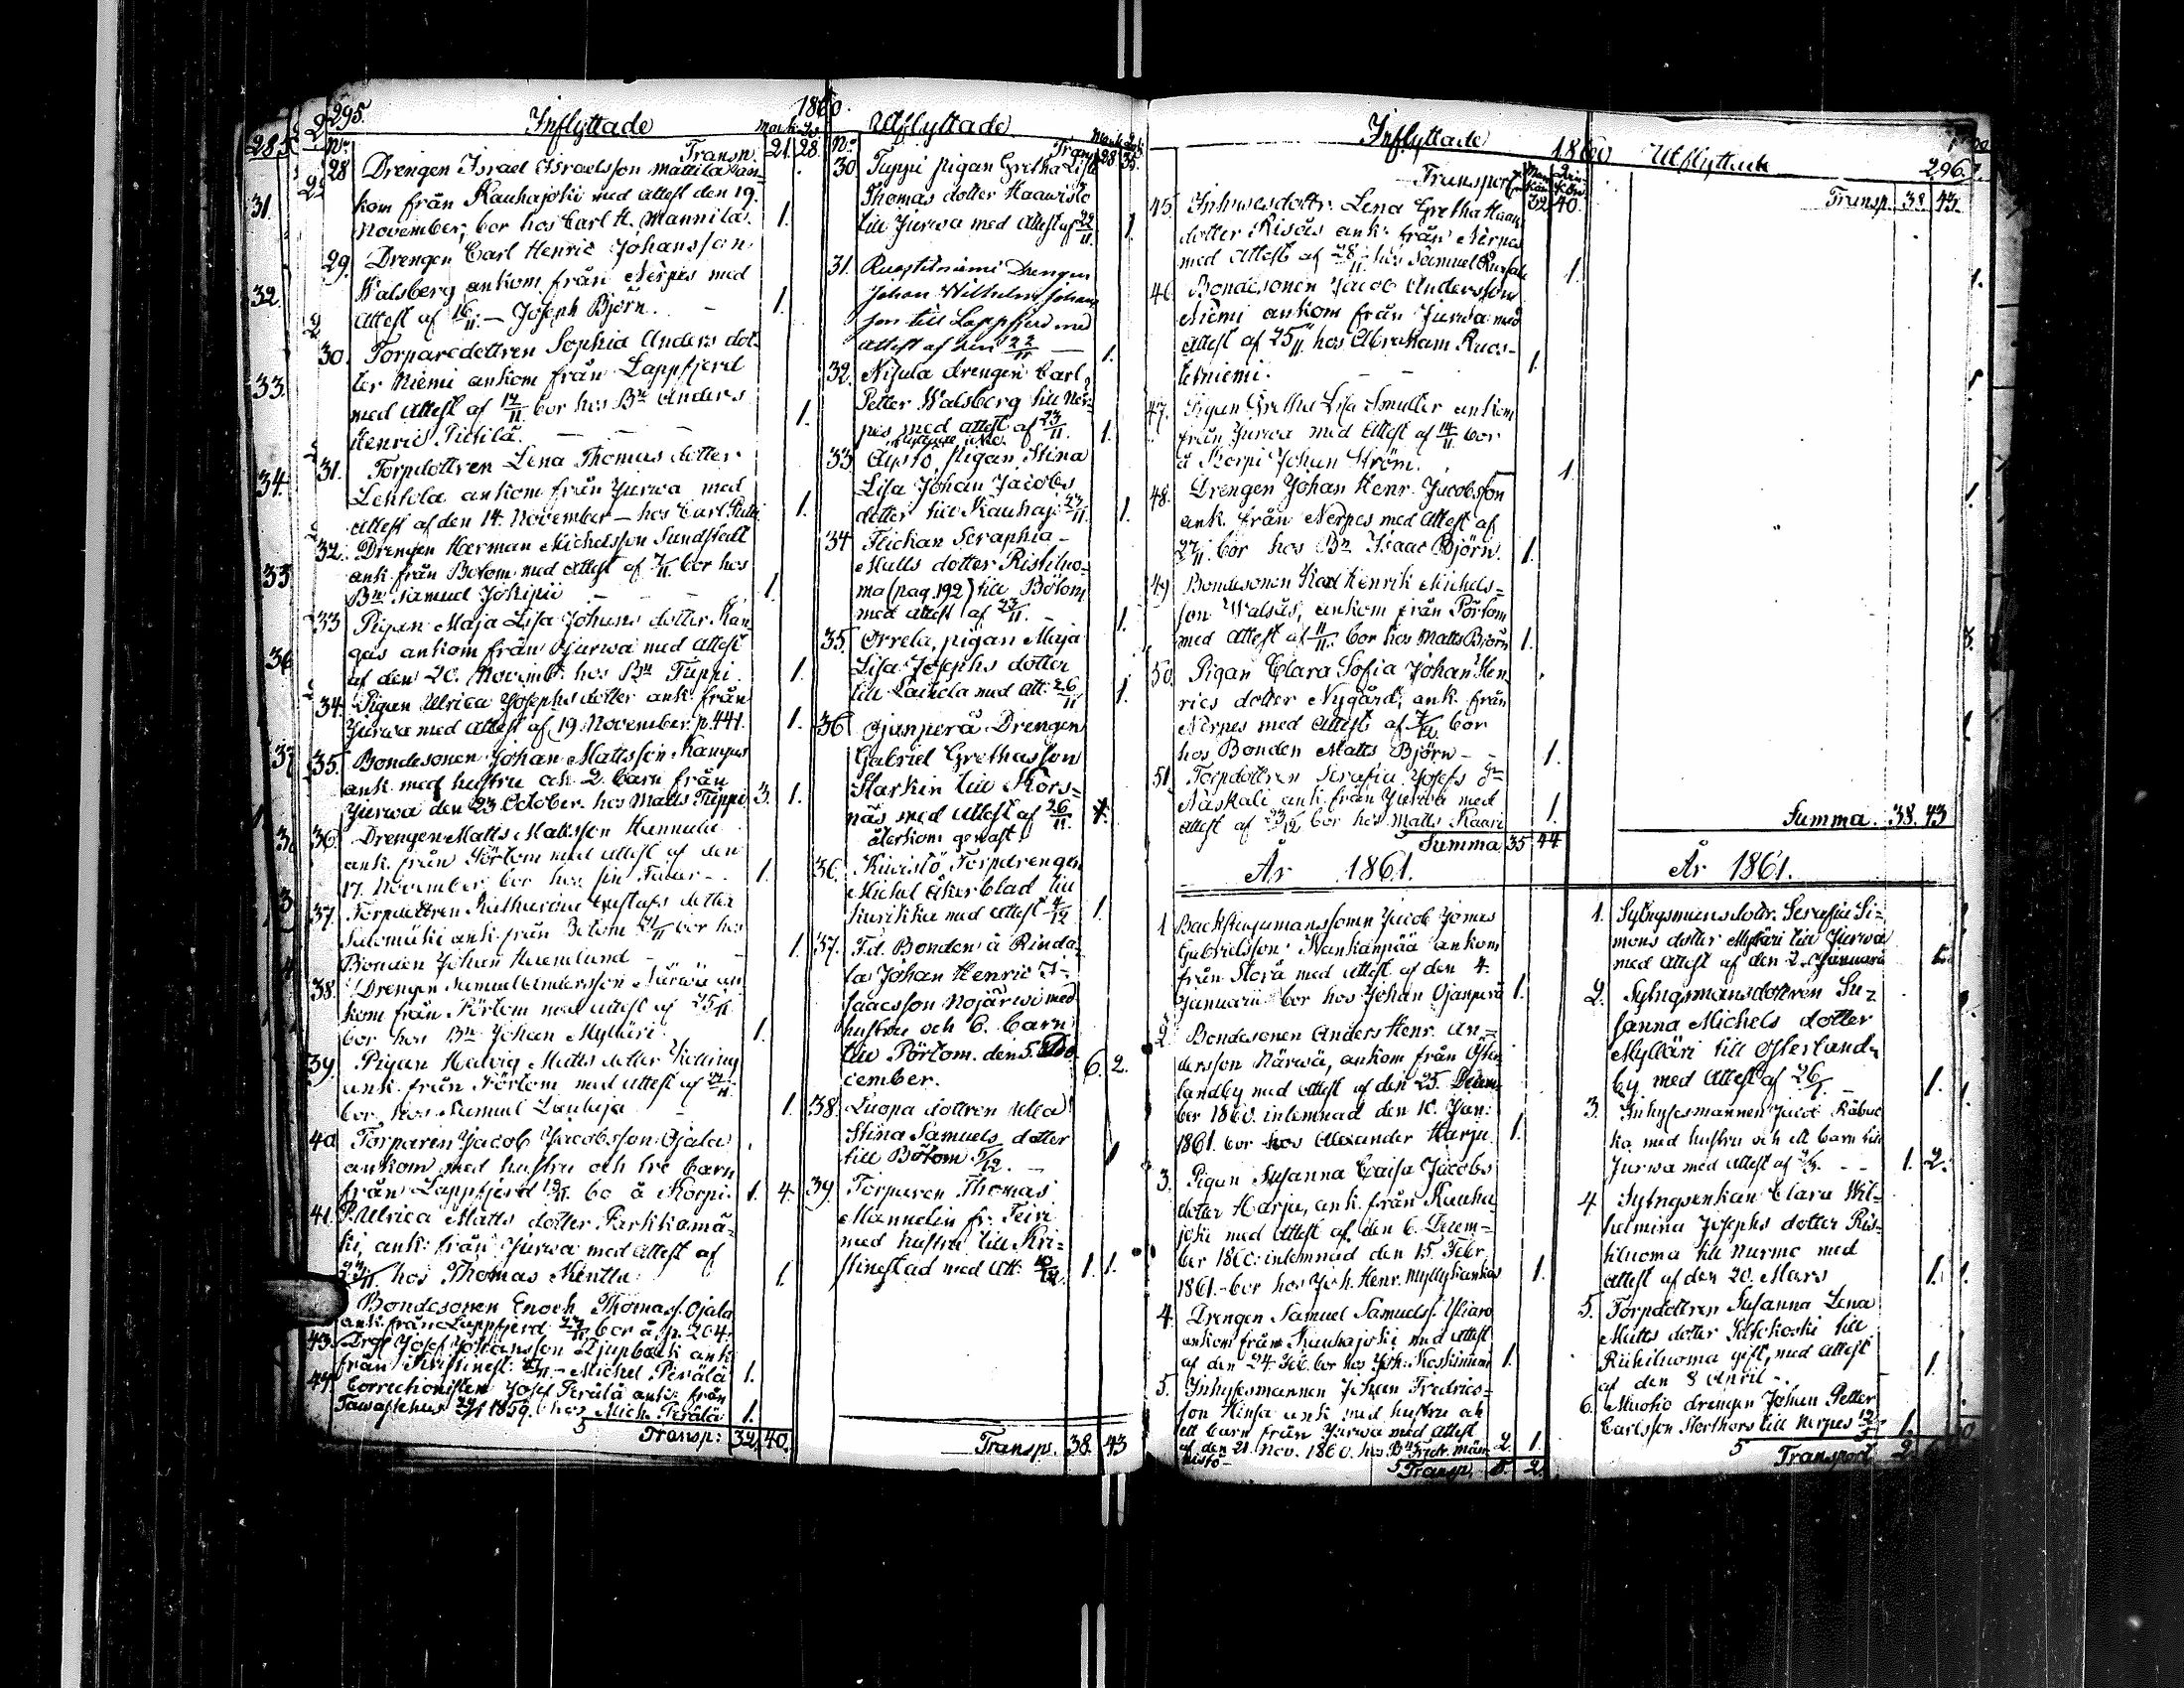 295.
Inflyttade
1860.
No Transp. 21. 28
28 Drengen Israel Israelsson Mattila an-
kom från Kauhajoki med attest den 19.
November, bor hos Carl H. Mannila. 1.
29. Drengen Carl Henric Johansson
Walsberg ankom från Nerpes med
attest af 16/11. — Joseph Björn. 1.
30. Torparedottren Sophia Anders dot-
ter Niemi ankom från Lappfjerd
med attest af 17/11 bor hos Bn Anders
Henric 1.
31. Torpdottren Lena Thomas dotter
Lehtola ankom från Jurwa med
attest af den 14. November — hos Carl 1.
32. Drengen Herman Michelsson Sundstedt
ank. från Bötom med attest af 7/11. bor hos
Bn Samuel Jokipii 1.
33 Pigan Maja Lisa Johans dotter Kan-
gas ankom från Jurwa med attest
af den 20. Novemb. hos Bn Tuppi. 1.
34. Pigan Ulrica Josephs dotter ank. från
Jurwa med attest af 19 November. p. 441. 1.
35. Bondesonen Johan Mattsson Kangas
ank. med hustru och 2 barn från
Jurwa den 23 October. hos Matts Tuppi 3. 1.
36. Drengen Matts Mattsson Hannula
ank. från Pörtom med attest af den
17. November bor hos sin Fader 1.
37. Torpdottren Katharina Gustafs dotter
Salomäki ank. från Bötom 21/11 bor hos
Bonden Johan 1.
38. Drengen Samuel Andersson Närwä an-
kom från Pörtom med attest af 25/11
bor hos Bn Johan Mylläri. 1.
39. Pigan Hedvig Matts dotter
ank. från Pörtom med attest af
bor hos Samuel Lauhaja 1.
40 Torparen Jacob Jacobsson Ojala
ankom med hustru och tre barn
från Lappfjerd bo å Korpi. 1. 4.
41. P. Ulrica Matts dotter Parkkamä-
ki, ank. från Jurwa med attest af
23/11. hos Thomas Mentta. 1.
Bondesonen Enoch Thomass. Ojala
ank. från Lappfjerd 27/11 bor å p. 204.
43. Drg. Josef Johansson Djupbäck ank
från Kristinest. — Michel Perälä 1.
44. Correctionisten Josef Perälä ank. från
Tawastehus 29/1 1859. hos Mich. Perälä 1.
Transp: 32. 40.
Utflyttade
No Transp 28 35.
30 Tuppi pigan Gretha Lisa
Thomas dotter Haawisto
till Jurwa med attest af 22/11. 1.
31. Ruostetniemi Drengen
Johan Wilhelm Johans
son till Lappfjerd med
attest af den 22/11 — 1.
32. Nisula drengen Carl
Petter Walsberg till Ner-
pes med attest af 23/11. 1.
33 Aystö, pigan Stina
Lisa Johan Jacobs
dotter till Kauhaj. 23/11. 1.
34 Flickan Seraphia
Matts dotter Ristiluo-
ma (pag. 192) till Bötom
med attest af 23/11. 1.
35. Orrela, pigan Maja
Lisa Josephs dotter
till Laihela med att. 26/11 1.
36 Ojanperä Drengen
Gabriel Grethasson
Starkin till Kors-
näs med attest af 26/11.
återkom genast!
36. Kiwistö, Torpdrengen
Michel Åkerblad till
Kurikka med attest 4/12 1.
37. F.d. Bonden å Rinda-
la Johan Henric I-
saacsson Nojärwi med
hustru och 6. barn
till Pörtom. den 5. De-
cember. 6. 2.
38. Luopa dottren Ulla
Stina Samuels dotter
till Bötom 5/12. — 1
39. Torparen Thomas
Mannelin fr. Teiri
med hustru till Kri-
stinestad med att. 10/12. 1. 1.
Transp. 38. 43
Inflyttade
1860
Transport 32 40.
45. Inhysesdottr. Lena Gretha
dotter Risås ank. från Nerpes
med attest af 28/11 hos Samuel 1.
46. Bondesonen Jacob Andersson
Niemi ankom från Jurwa med
attest af 25/11 hos Abraham Ruos-
tetniemi. 1.
47. Pigan Gretha Lisa Smuller ankom
från Jurwa med attest af 14/11 bor
å Korpi Johan Ström. 1.
48. Drengen Johan Henr. Jacobsson
ank. från Nerpes med attest af
27/11. bor hos Bn Isaac Björn. 1.
49 Bondesonen Karl Henrik Michels-
son Walsås, ankom från Pörtom
med attest af 11/11. bor hos Matts Björn 1.
50. Pigan Clara Sofia Johan Hen
rics dotter Nygård, ank. från
Nerpes med attest af bor
hos Bonden Matts Björn 1.
51. Torpdottren Serafia Josefs dr
Näskali ank. från Jurwa med
attest af 23/12 bor hos Matts Kaari 1.
Summa 35 44
År 1861.
1 Backstugumanssonen Jacob Jonas
Gabrielsson Wankanpää ankom
från Storå med attest af den 4.
Januarii bor hos Johan Ojanperä 1.
2. Bondesonen Anders Henr. An-
dersson Närwä, ankom från Öster
landby med attest af den 25. Decem
ber 1860. inlemnad den 10. Jan:
1861. bor hos Alexander Harju. 1.
3. Pigan Susanna Caisa Jacobs
dotter Harju, ank. från Kauha
joki med attest af den 6. Decem-
ber 1860: inlemnad den 15. Febr.
1861. - bor hos Joh. Henr. Myllykankas 1.
4. Drengen Samuel Samuelss. Yliaro
ankom från Kauhajoki med attest
af den 24. Feb. bor hos Joh. Koskiniemi 1.
5. Inhysesmannen Johan Fredrics-
son Hinsa ank med hustru och
ett barn från Jurwa med attest
af den 21. Nov. 1860. hos Bn Fredr. män
nistö - 2. 1.
5 Transp. 5. 2.
Utflyttade
296.
Transp. 38. 43.
Summa. 38. 43
År 1861.
1. Sytngsmansdottr. Serafia Si-
mons dotter Mylläri till Jurwa
med attest af den 2. Januarii
2. Sytngsmansdottren Su-
sanna Michels dotter
Mylläri till Österland-
by med attest af 26/1. 1.
3. Inhysesmannen Jacob
ka med hustru och ett barn till
Jurwa med attest af 1. 2.
4 Sytngsenkan Clara Wil-
helmina Josephs dotter Ris-
tiluoma till Nurmo med
attest af den 20. Mars 1.
5. Torpdottren Susanna Lena
Matts dotter till
Riihiluoma gift, med attest
af den 8 April -. 1
6. Muoho drengen Johan Petter
Carlsson Storthors till Nerpes 1.
5 Transport 2.